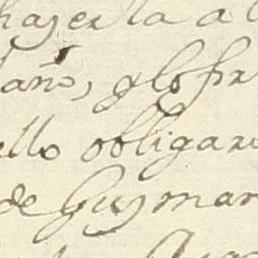 hazerla a l
año, y lo fir
ello obligar
de Guymar